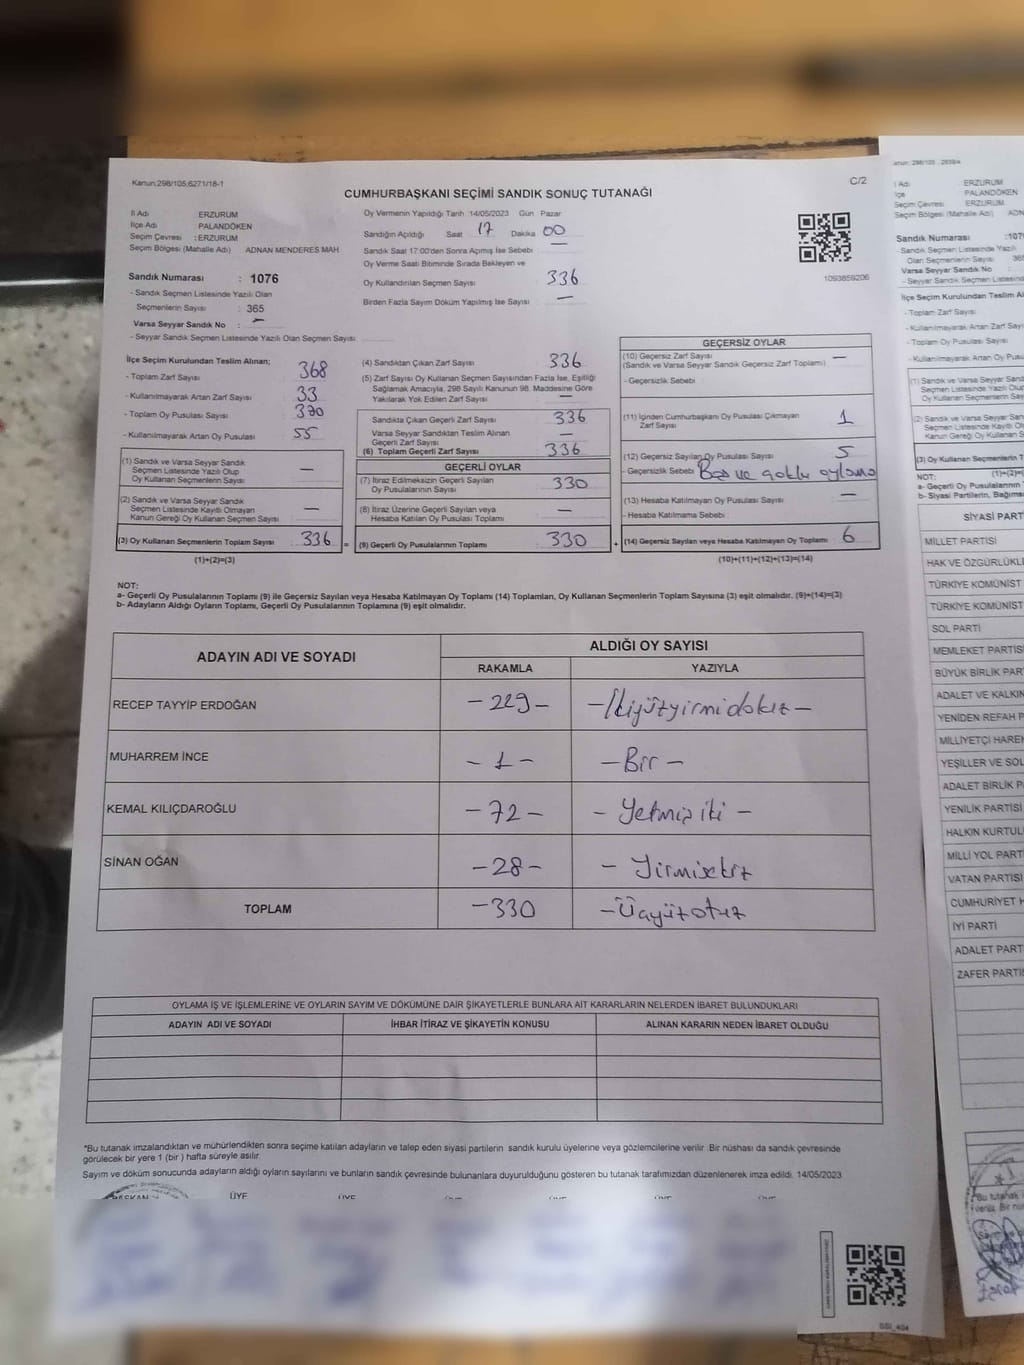 Kanun;298/105;6271/18-1
C/2
CUMHURBAŞKANI SEÇİMİ SANDIK SONUÇ TUTANAĞI
İl Adı ERZURUM
İlçe Adı PALANDÖKEN
Seçim Çevresi : ERZURUM
Seçim Bölgesi (Mahalle Adı) ADNAN MENDERES MAH.
Oy Vermenin Yapıldığı Tarih 14/05/2023 Gün Pazar
Sandığın Açıldığı Saat 17 Dakika 00
Sandık Saat 17:00'den Sonra Açımış İse Sebebi —
Oy Verme Saati Bitiminde Sırada Bekleyen ve
Oy Kullandırılan Seçmen Sayısı 336
Birden Fazla Sayım Döküm Yapılmış İse Sayısı —
1093859206
Sandık Numarası : 1076
- Sandık Seçmen Listesinde Yazılı Olan
Seçmenlerin Sayısı : 365
Varsa Seyyar Sandık No : —
- Seyyar Sandık Seçmen Listesinde Yazılı Olan Seçmen Sayısı :
İlçe Seçim Kurulundan Teslim Alınan;
- Toplam Zarf Sayısı 368
- Kullanılmayarak Artan Zarf Sayısı 33
- Toplam Oy Pusulası Sayısı 370
- Kullanılmayarak Artan Oy Pusulası 55
(1) Sandık ve Varsa Seyyar Sandık
Seçmen Listesinde Yazılı Olup
Oy Kullanan Seçmenlerin Sayısı —
(2) Sandık ve Varsa Seyyar Sandık
Seçmen Listesinde Kayıtlı Olmayan
Kanun Gereği Oy Kullanan Seçmen Sayısı —
(3) Oy Kullanan Seçmenlerin Toplam Sayısı 336 =
(1)+(2)=(3)
(4) Sandıktan Çıkan Zarf Sayısı 336
(5) Zarf Sayısı Oy Kullanan Seçmen Sayısından Fazla İse, Eşitliği
Sağlamak Amacıyla, 298 Sayılı Kanunun 98. Maddesine Göre
Yakılarak Yok Edilen Zarf Sayısı —
Sandıkta Çıkan Geçerli Zarf Sayısı 336
Varsa Seyyar Sandıktan Teslim Alınan
Geçerli Zarf Sayısı —
(6) Toplam Geçerli Zarf Sayısı 336
GEÇERLİ OYLAR
(7) İtiraz Edilmeksizin Geçerli Sayılan
Oy Pusulalarının Sayısı 330
(8) İtiraz Üzerine Geçerli Sayılan veya
Hesaba Katılan Oy Pusulası Toplamı —
(9) Geçerli Oy Pusulalarının Toplamı 330 +
GEÇERSİZ OYLAR
(10) Geçersiz Zarf Sayısı —
(Sandık ve Varsa Seyyar Sandık Geçersiz Zarf Toplamı)
- Geçersizlik Sebebi
(11) İçinden Cumhurbaşkanı Oy Pusulası Çıkmayan
Zarf Sayısı 1
(12) Geçersiz Sayılan Oy Pusulası Sayısı 5
- Geçersizlik Sebebi Boş ve çoklu oylama
(13) Hesaba Katılmayan Oy Pusulası Sayısı —
- Hesaba Katılmama Sebebi
(14) Geçersiz Sayılan veya Hesaba Katılmayan Oy Toplamı 6
(10)+(11)+(12)+(13)=(14)
NOT:
a- Geçerli Oy Pusulalarının Toplamı (9) ile Geçersiz Sayılan veya Hesaba Katılmayan Oy Toplamı (14) Toplamları, Oy Kullanan Seçmenlerin Toplam Sayısına (3) eşit olmalıdır. (9)+(14)=(3)
b- Adayların Aldığı Oyların Toplamı, Geçerli Oy Pusulalarının Toplamına (9) eşit olmalıdır.
ADAYIN ADI VE SOYADI
ALDIĞI OY SAYISI
RAKAMLA YAZIYLA
RECEP TAYYİP ERDOĞAN -229- -İkiyüzyirmidokuz-
MUHARREM İNCE -1- -Bir-
KEMAL KILIÇDAROĞLU -72- -Yetmişiki-
SİNAN OĞAN -28- -Yirmisekiz
TOPLAM -330 -Üçyüzotuz
OYLAMA İŞ VE İŞLEMLERİNE VE OYLARIN SAYIM VE DÖKÜMÜNE DAİR ŞİKAYETLERLE BUNLARA AİT KARARLARIN NELERDEN İBARET BULUNDUKLARI
ADAYIN ADI VE SOYADI İHBAR İTİRAZ VE ŞİKAYETİN KONUSU ALINAN KARARIN NEDEN İBARET OLDUĞU
*Bu tutanak imzalandıktan ve mühürlendikten sonra seçime katılan adayların ve talep eden siyasi partilerin sandık kurulu üyelerine veya gözlemcilerine verilir. Bir nüshası da sandık çevresinde
görülecek bir yere 1 (bir) hafta süreyle asılır.
Sayım ve döküm sonucunda adayların aldığı oyların sayılarını ve bunların sandık çevresinde bulunanlara duyurulduğunu gösteren bu tutanak tarafımızdan düzenlenerek imza edildi. 14/05/2023
BAŞKAN ÜYE ÜYE ÜYE ÜYE ÜYE ÜYE
İl Adı ERZURUM
İlçe PALANDÖKEN
Seçim Çevresi ERZURUM
Seçim Bölgesi (Mahalle Adı)
Sandık Numarası
- Sandık Seçmen Listesinde Yazılı
Olan Seçmenlerin Sayısı
Varsa Seyyar Sandık No
İlçe Seçim Kurulundan Teslim
- Toplam Zarf Sayısı
- Kullanılmayarak Artan Zarf
- Toplam Oy Pusulası Sayısı
- Kullanılmayarak Artan Oy
NOT:
MİLLET PARTİSİ
HAK VE
TÜRKİYE KOMÜNİST
TÜRKİYE KOMÜNİST
SOL PARTİ
MEMLEKET
BÜYÜK BİRLİK
ADALET VE
YENİDEN REFAH
MİLLİYETÇİ
YEŞİLLER VE SOL
ADALET BİRLİK
YENİLİK PARTİSİ
HALKIN
MİLLİ YOL
VATAN PARTİSİ
CUMHURİYET
İYİ PARTİ
ADALET
ZAFER